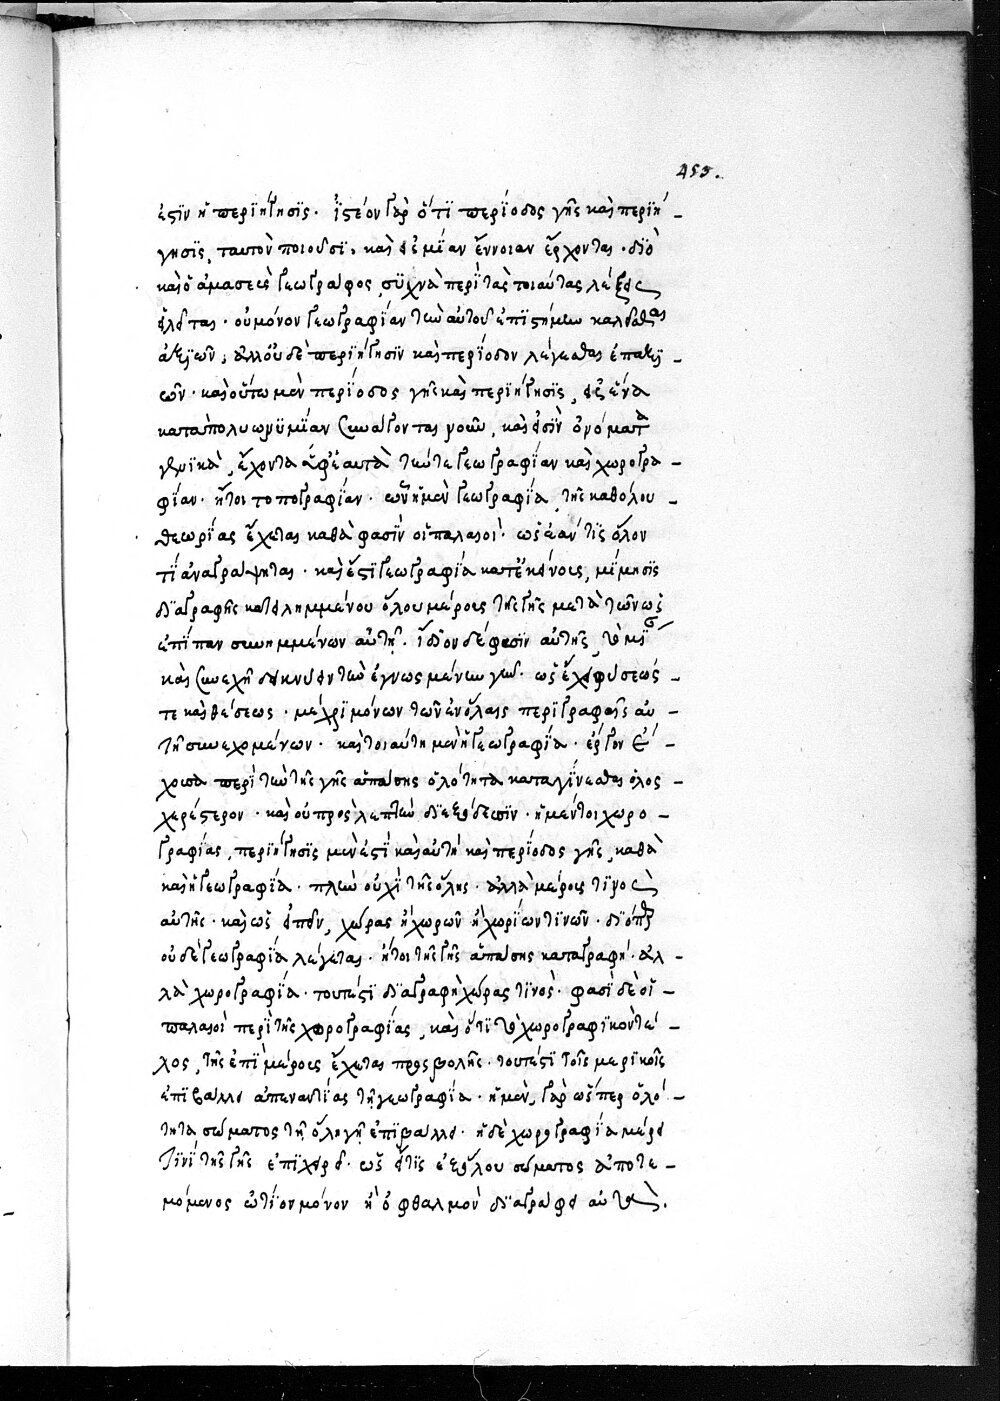 455.
ἐςϊν ἢ περϊήγησϊς· ϊςέον γὰρ ὅτϊ περϊοδος γῆς καὶ περϊή –
γησϊς, ταυτὸν ποιοῦσϊ, καὶ εἰς μΐαν ἔννοιαν ἔρχονται· δϊὸ
καὶ ὁ ἀμασεὺς γεωγράφος, συχνὰ περὶ τὰς τοιαύτας λέξεις
εἰλεῖται· οὐ μόνον γεωγραφΐαν τὴν αὐτοῦ ἐπϊςήμην καλεῖσθαι
ἀξϊῶν, ἀλλ' οὐδὲ περϊήγησϊν καὶ περΐοδον λέγεσθαι ἐπαξϊ –
ῶν· καὶ οὕτω μὲν περΐοδος γῆς καὶ περϊήγησϊς, εἰς ἕνα
κατὰ πολυωνυμΐαν συνάγονται νοῦν, καὶ εἰσϊν ὀνόματα
γενϊκὰ, ἔχοντα ὑφ' ἑαυτὰ τήν τε γεωγραφΐαν καὶ χωρογρα –
φΐαν· ἤτοι τοπογραφΐαν· ὧν ἡ μὲν γεωγραφΐα, τῆς καθόλου –
θεωρΐας ἔχεται καθὰ φασϊν οἱ παλαιοΐ· ὡς ἐάν τϊς ὅλον
τϊ ἀναγράψηται· καὶ ἔςϊ γεωγραφΐα κατ' ἐκείνους, μΐμησϊς
δϊαγραφῆς κατειλημμένου ὅλου μέρους τῆς γῆς μετὰ τῶν ὡς
ἐπΐπαν συνημμένων αὐτῇ· ἴδϊον δέ φασϊν αὐτῆς, τὸ μΐαν
καὶ συνεχῆ δεικνύειν τὴν ἐγνωσμένην γῆν· ὡς ἔχει φύσεώς –
τε καὶ θέσεως· μέχρϊ μόνων τῶν ἐν ὅλαις περϊγραφαῖς αὐ –
τῇ συνεχομένων· καὶ τοιαύτη μὲν ἡ γεωγραφΐα· ἔργον ἔ –
χουσα περὶ τὴν τῆς γῆς ἁπάσης ὁλότητα καταγΐνεσθαι ὁλος –
χερέςερον· καὶ οὐ πρὸς λεπτὴν δϊεξόδευσϊν· ἡ μέντοι χωρο –
γραφΐας, περϊήγησϊς μὲν ἐςὶ καὶ αὐτὴ καὶ περΐοδος γῆς, καθὰ
καὶ ἡ γεωγραφΐα· πλὴν οὐχὶ τῆς ὅλης· ἀλλὰ μέρους τϊνος
αὐτῆς· καὶ ὡς εἰπεῖν, χώρας ἢ χωρῶν ἢ χωρΐων τϊνῶν· δϊόπερ
οὐδὲ γεωγραφΐα λέγεται· ἤτοι τῆς γῆς ἁπάσης καταγραφή· ἀλ –
λὰ χωρογραφΐα· τουτέςϊ δϊαγραφὴ χώρας τϊνός· φασὶ δὲ οἱ –
παλαιοὶ περὶ τῆς χωρογραφΐας, καὶ ὅτϊ τὸ χωρογραφϊκὸν τέ –
λος, τῆς ἐπὶ μέρους ἔχεται προςβολῆς· τουτέςϊ τοῖς μερϊκοῖς
ἐπϊβάλλει ἀπεναντΐας τῇ γεωγραφΐα· ἡ μὲν γὰρ ὥσπερ ὁλό –
τητα σώματος τῇ ὅλῃ γῇ ἐπϊβάλλει· ἡ δὲ χωρογραφΐα μέρει
τϊνὶ τῆς γῆς ἐπϊχειρεῖ· ὡς εἴ τϊς ἐξ ὅλου σώματος ἀποτε –
μόμενος ὠτΐον μόνον ἢ ὀφθαλμὸν δϊαγράφει αὐτὸ.